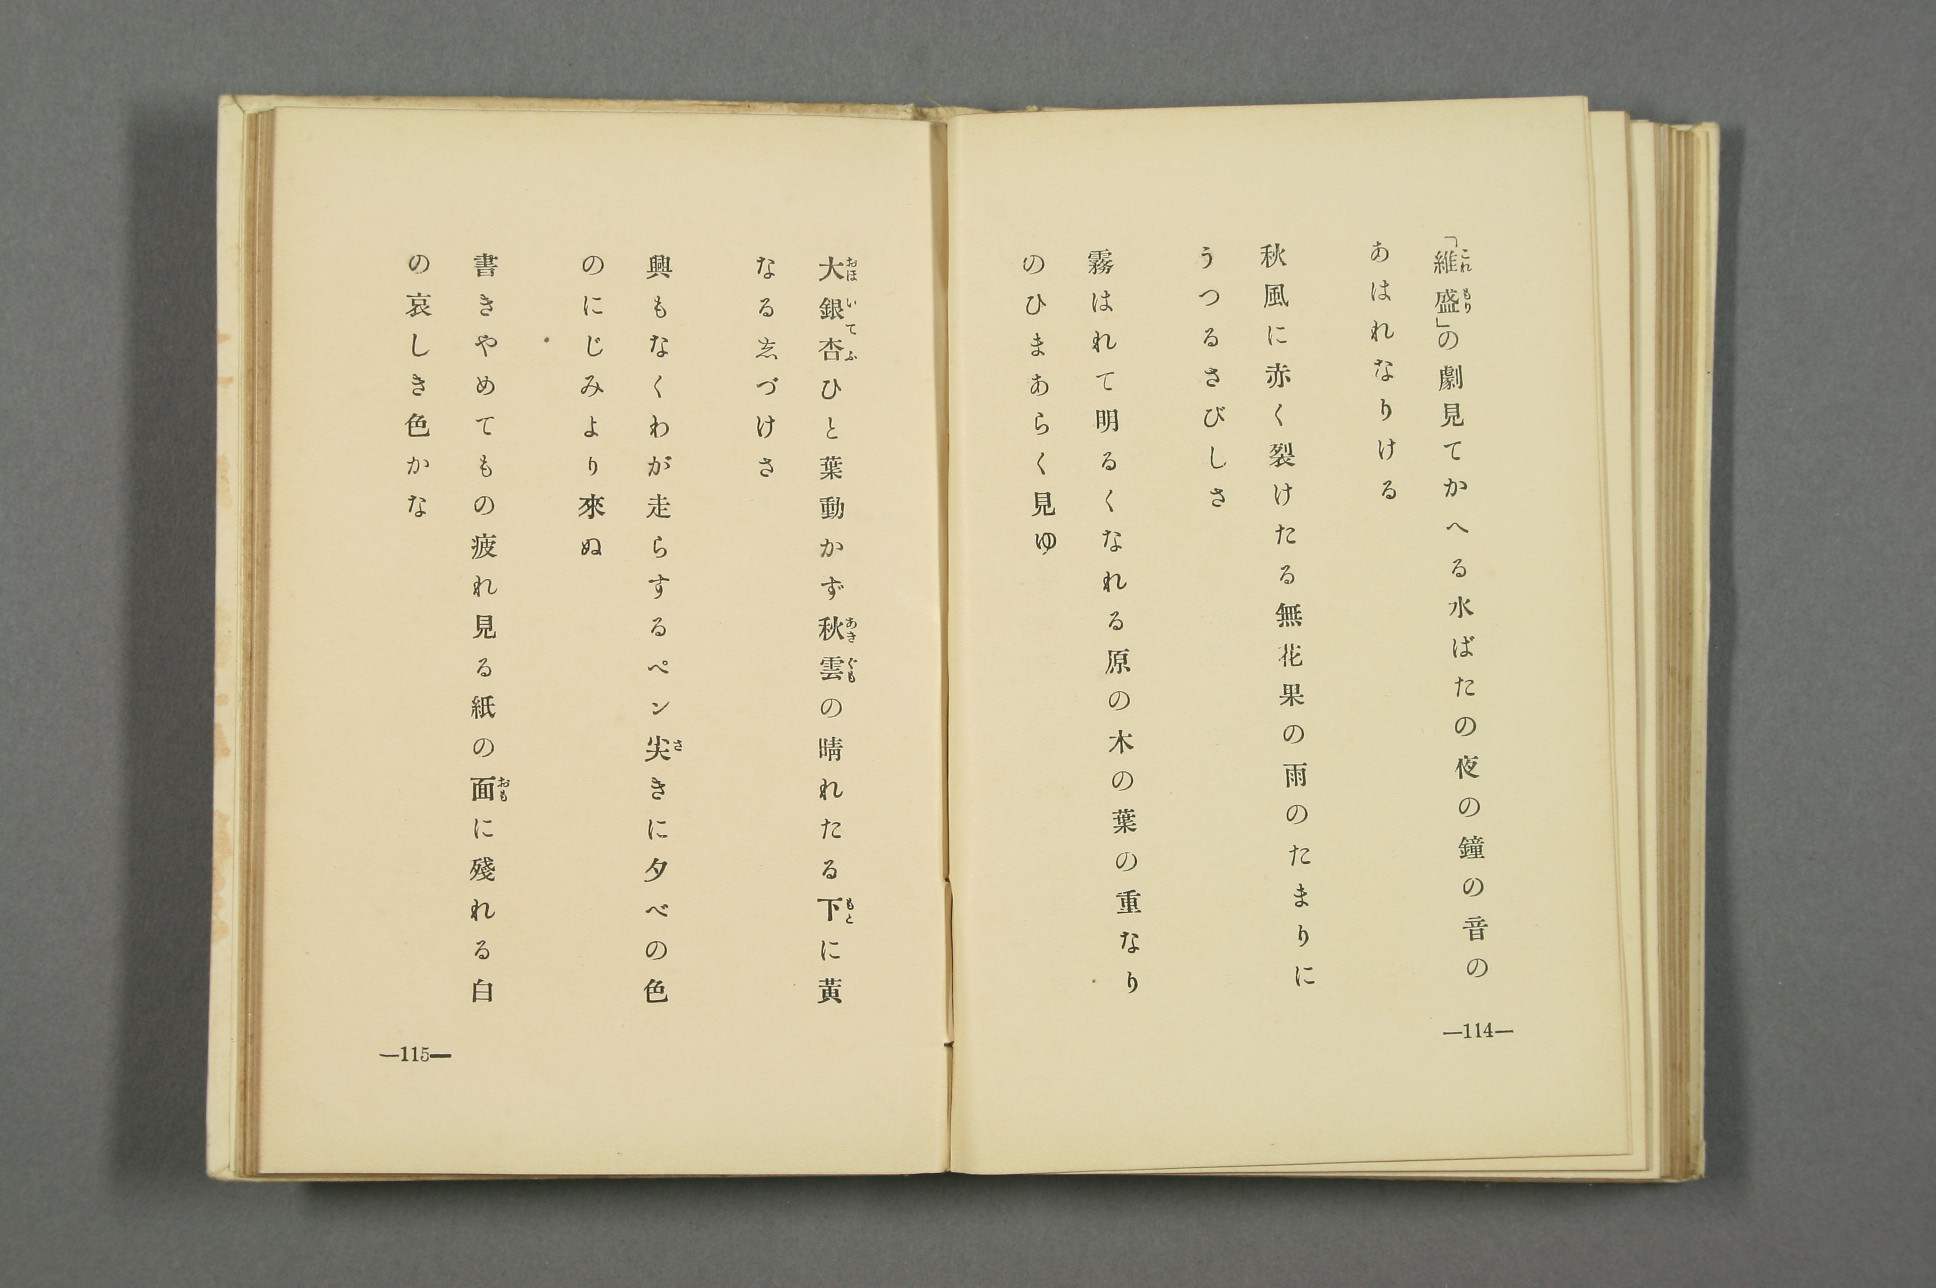 「維盛」の劇見てかへる水ばたの夜の鐘の音の
あはれなりける
秋風に赤く裂けたる無花果の雨のたまりに
うつるさびしさ
霧はれて明るくなれる原の木の葉の重なり
のひまあらく見ゆ
—114—
大銀杏ひと葉動かず秋雲の晴れたる下に黄
なるゑづけさ
興もなくわが走らするペン尖きに夕べの色
のにじみより來ぬ
書きやめてもの疲れ見る紙の面に殘れる白
の哀しき色かな
—115—